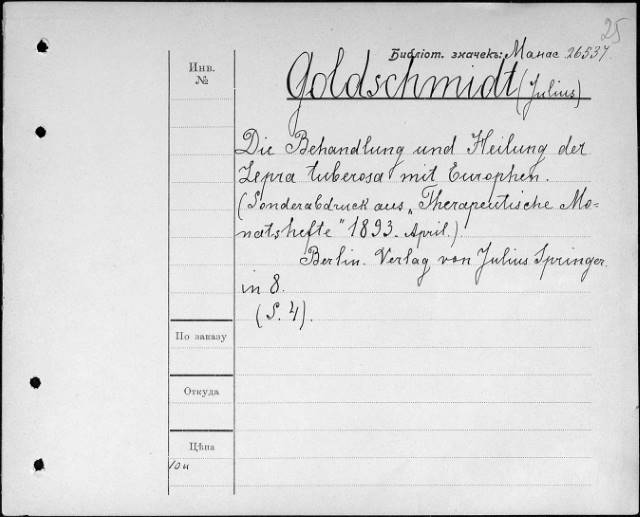 25
Библіот. значекъ: Манас 26537.
Инв.
№
Goldschmidt (Julius)
Die Behandlung und Heilung der
Lepra tuberosa mit Europhen.
(Sonderabdruck aus „Therapeutische Mo-
natshefte" 1893. April.)
Berlin. Verlag von Julius Springer.
in 8.
(S. 4).
По заказу
Откуда
Цѣна